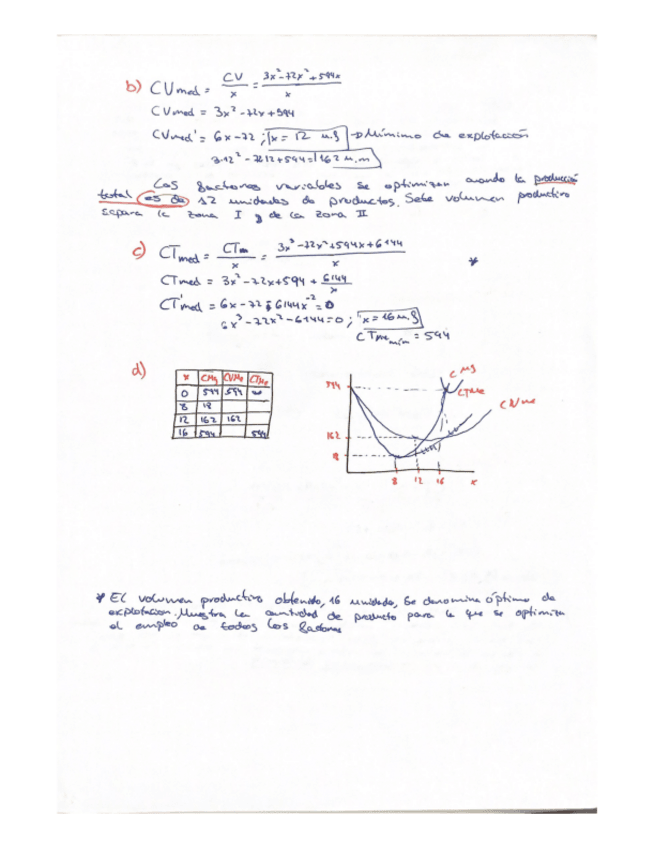 b) CVmed = CV/x = 3x²-72x²+594x/x
CVmed = 3x²-72x+594
CVmed' = 6x-72 ; x = 12 u.f → Mínimo de explotación
3·12²-72·12+594 = 162 u.m
Los factores variables se optimizan cuando la producción
total es de 12 unidades de productos. Este volumen productivo
separa la zona I y de la zona II
c) CTmed = CTm/x = 3x³-72x²+594x+6144/x *
CTmed = 3x²-72x+594 + 6144/x
CT'med = 6x-72 6144x⁻² = 0
6x³-72x²-6144=0 ; x = 16 u.f
CTme mín = 594
d)
x CMg CVMe CTMe
0 594 594 ∞
8 18
12 162 162
16 594 594
CMg
CTMe
CVMe
594
162
18
8 12 16 x
* El volumen productivo obtenido, 16 unidades, se denomina óptimo de
explotación. Muestra la cantidad de producto para la que se optimiza
el empleo de todos los factores